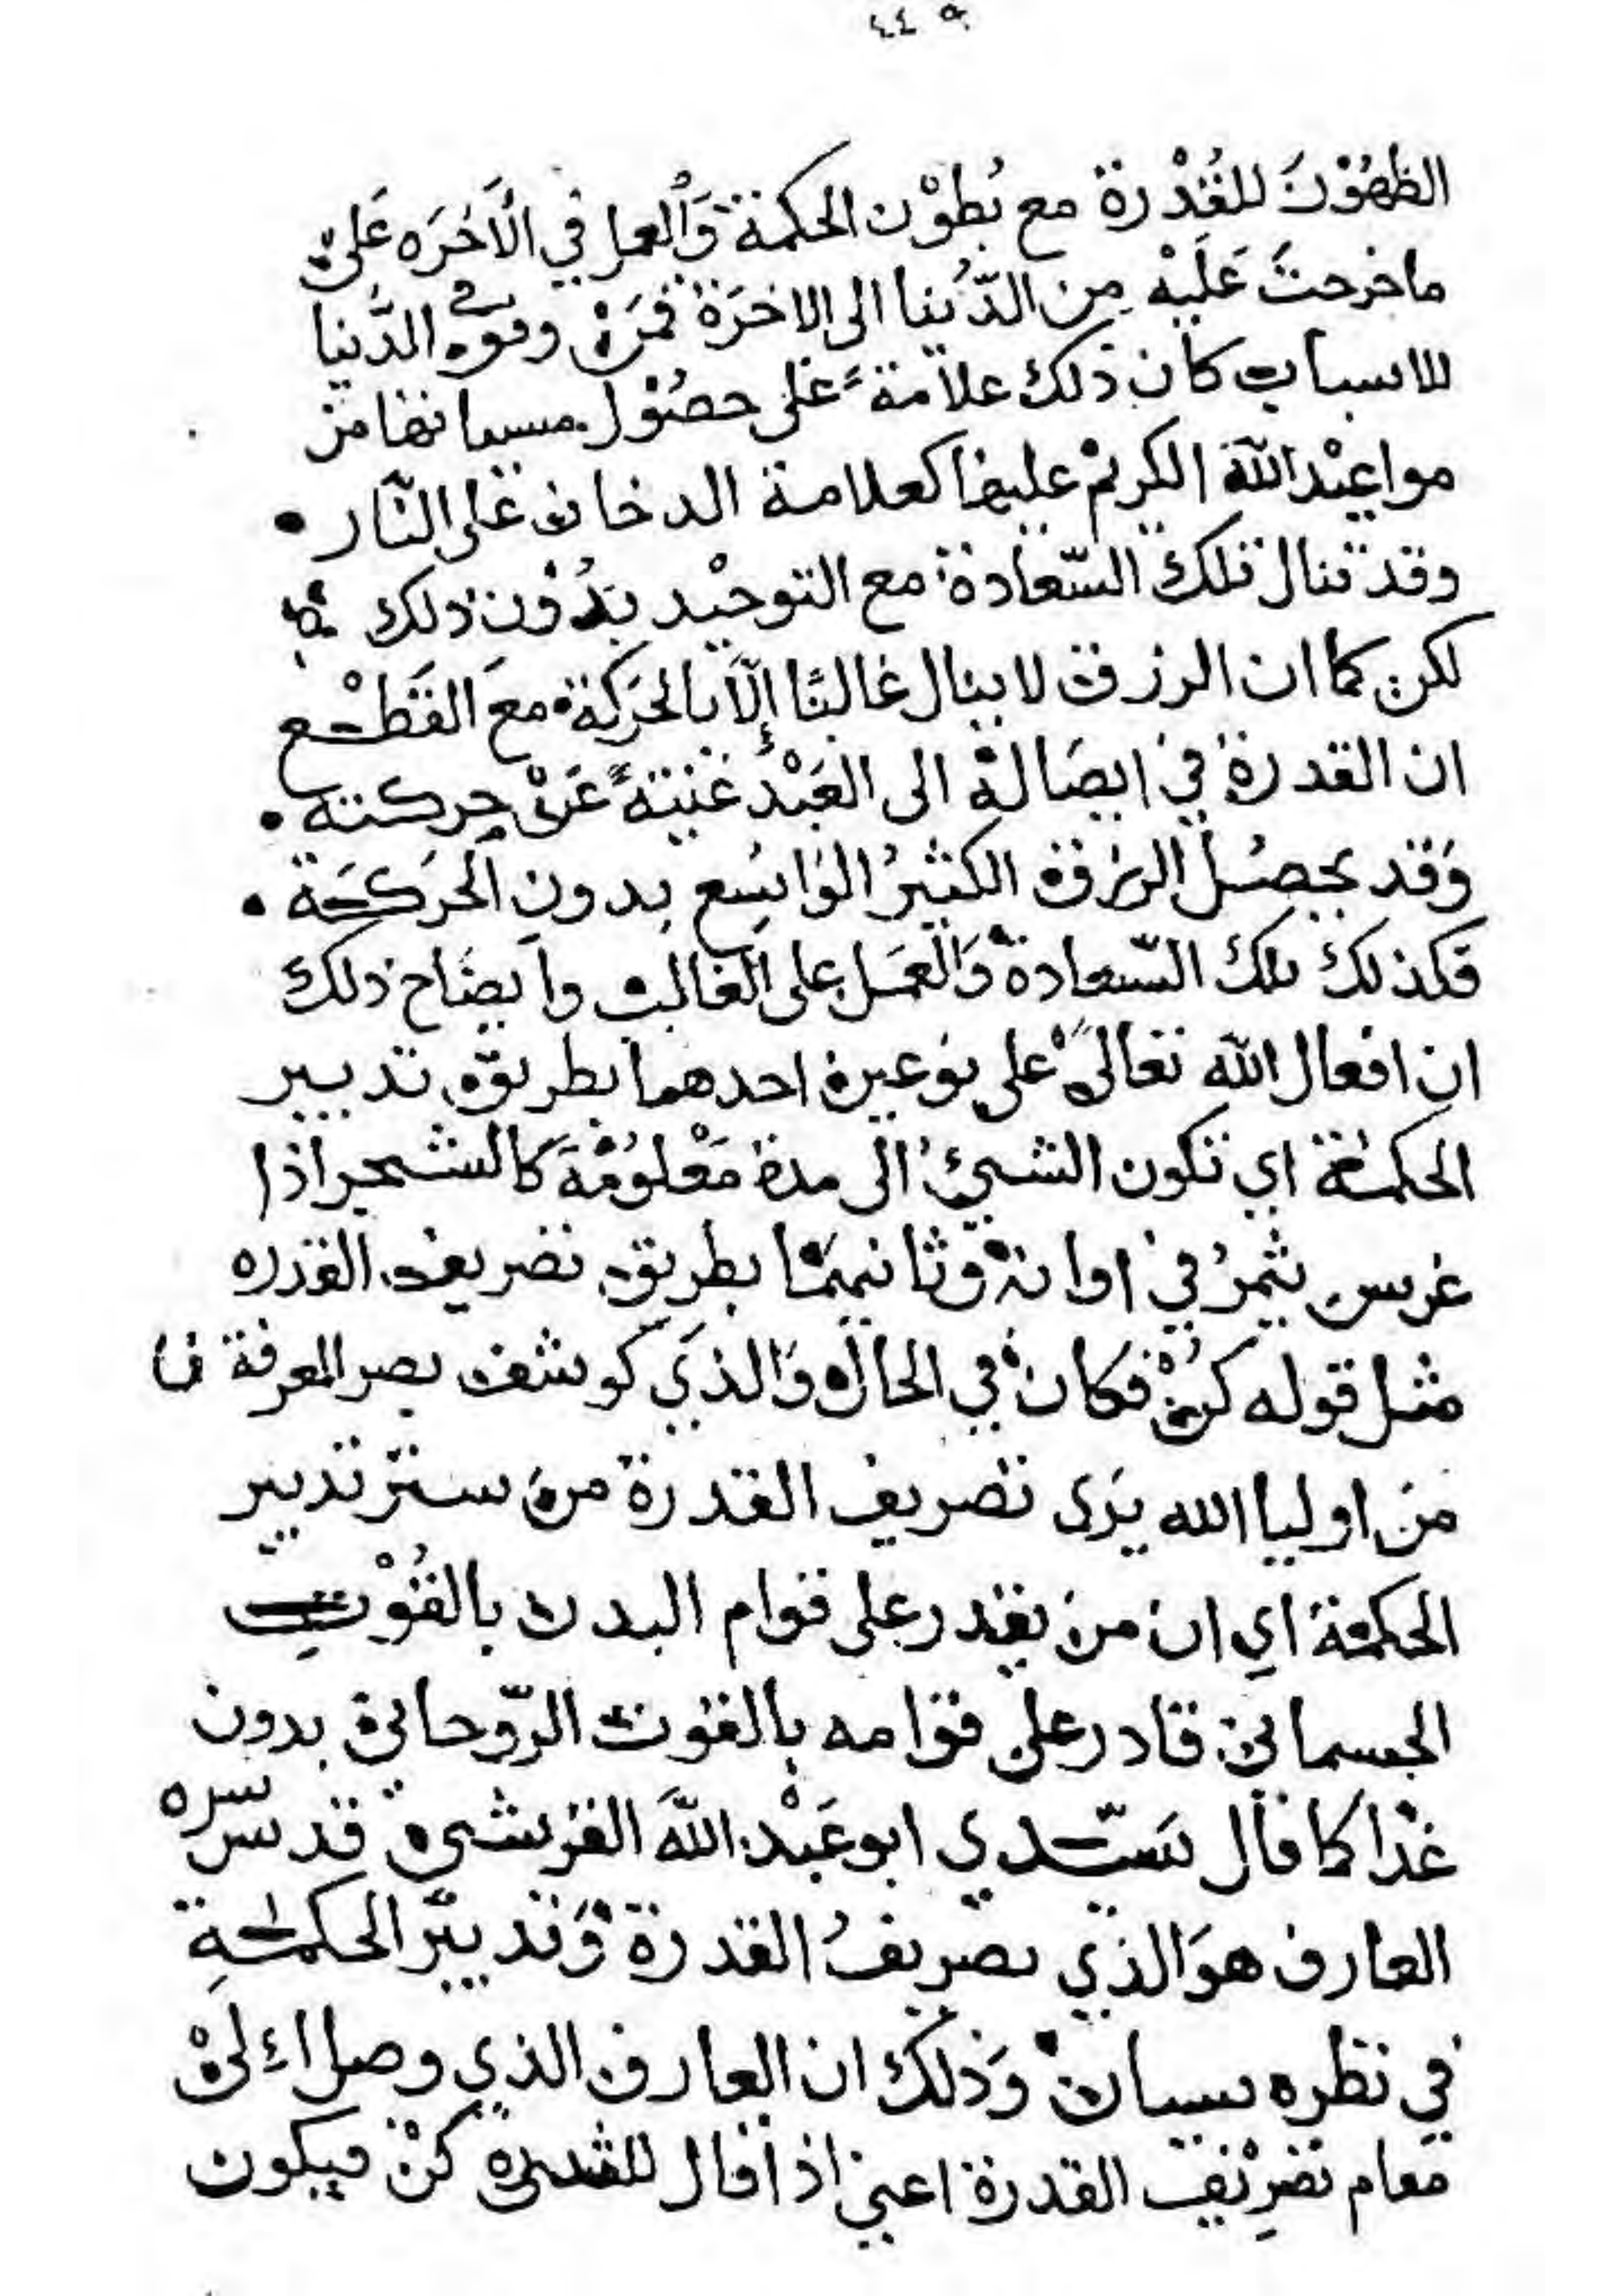 ٤٤٩
الظهُوْرَ للقُدْرة مع بُطوْن الحكمة وَالعمل في الاَخرَه عَلى
ماخرجتَ عَليْه من الدُّنيا الى الاخرَة فمَنْ وفق في الدُّنيا
للاسباب كان ذلك علامةً على حصُوْل مسبباتها من
مواعِيْد اللهَ الكريمْ عليها كعلامة الدخان على النّار •
وقد تنال تلك السّعادة مع التوحيْد بدُوْن ذلك
لكن كما ان الرزق لا ينال غالبًا إلّا بالحَركة مع القَطْع
ان القدرة في ايصَاله الى العَبْد غنيةً عَنْ حركته •
وَقد يحصُل الرزق الكثيرُ الوَاسِع بدون الحَركَة •
فكذلك تلك السّعادة وَالعمَل على الغالب وايضَاح ذلك
ان افعال الله تعالىَ على نوعين احدهما بطريق تدبير
الحكمة اي تكون الشيئُ الى مدة مَعْلوُمَة كالشجر اذا
غرس يثمرُ في اوانه وثانيهمَا بطريق تصريف القدره
مثل قوله كُنْ فكان في الحال وَالذي كوشف بصر المعرفة
من اوليا الله يرَى تصريف القدرة من ستر تدبير
الحكمة اي ان من يقدر على قوام البدن بالقُوْتِ
الجسمانى قادر على قوامه بالقوت الرّوحانى بدون
غذا كما قال سَيّدي ابو عَبْد اللهَ القرشى قدس سره
العارف هوَ الذي تصريفُ القدرة وَتدبيْر الحكمَةِ
في نظره سيان وَذلك ان العارف الذي وصل الى
مقام تصرِيْف القدرة اعني اذا قال للشىء كنْ فيكون